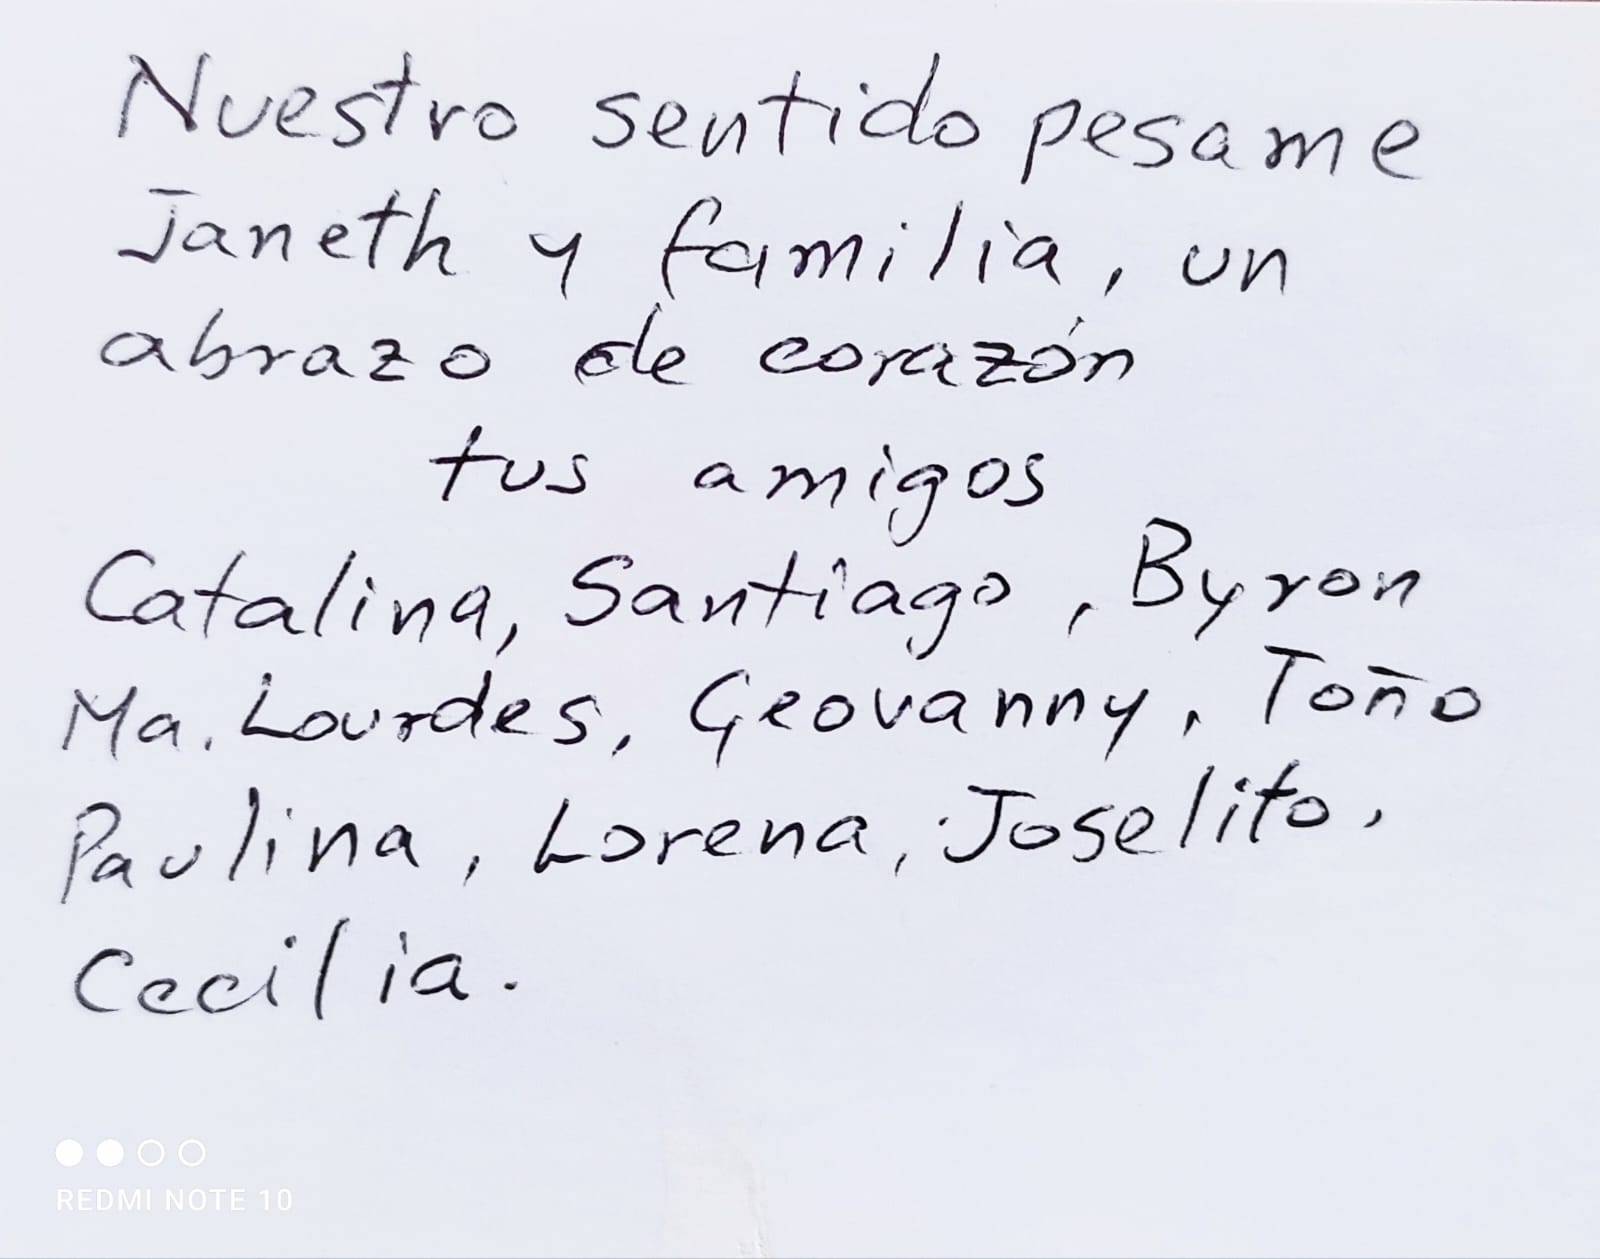 Nuestro sentido pesame
Janeth y familia, un
abrazo de corazón
tus amigos
Catalina, Santiago, Byron
Ma. Lourdes, Geovanny, Toño
Paulina, Lorena, Joselito,
Cecilia.
REDMI NOTE 10